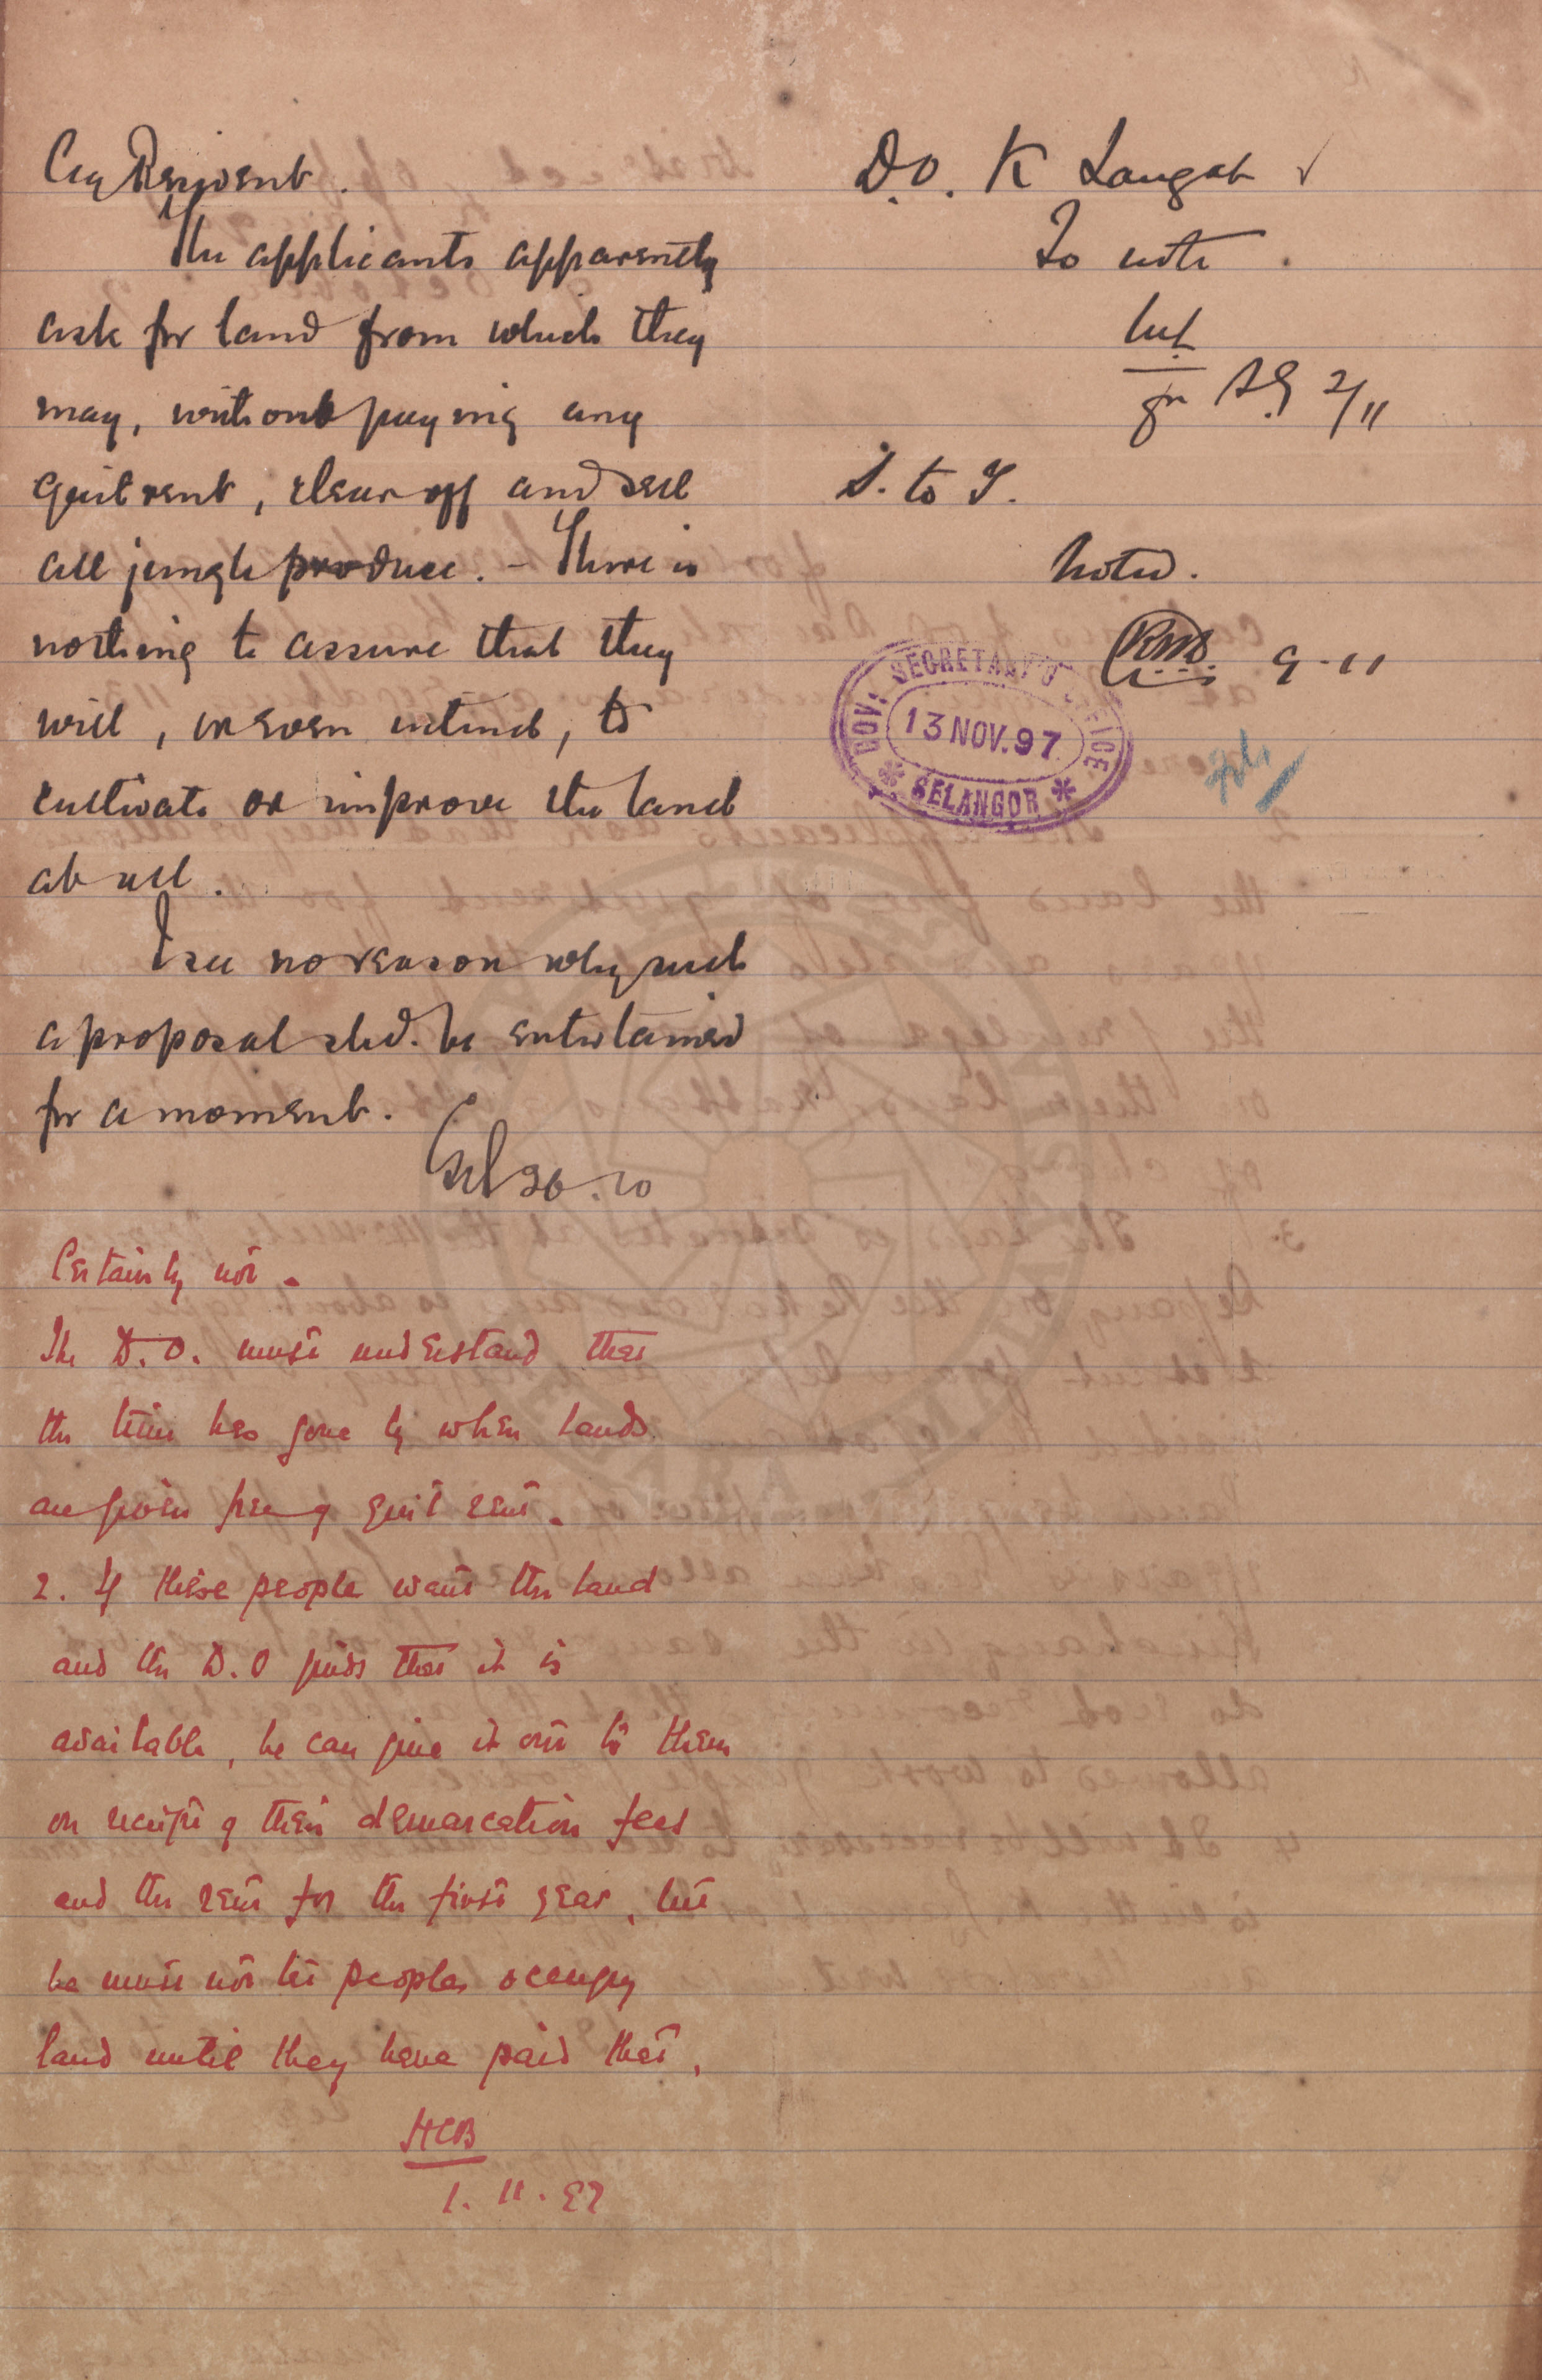 Ag Resident.
The applicants apparently
ask for land from which they
may, without paying any
quit rent, clear off and sell
all jungle produce. - There is
nothing to assure that they
will, or even intend, to
cultivate or improve the land
at all.
I see no reason why such
a proposal shd. be entertained
for a moment.
26.10
Certainly not.
The D.O. must understand that
the time has gone by when lands
are given free of quit rent.
2. If these people want the land
and the D.O finds that it is
available, he can give it out to them
on receipt of their demarcation fees
and the rent for the first year, but
he must not let people occupy
land until they have paid that.
HCB
1.11.97
D.O. K Langat ✓
To note.
for S.G 2/11
S. to G.
Noted.
9-11
GOV. SECRETARY'S OFFICE
13 NOV. 97
* SELANGOR *